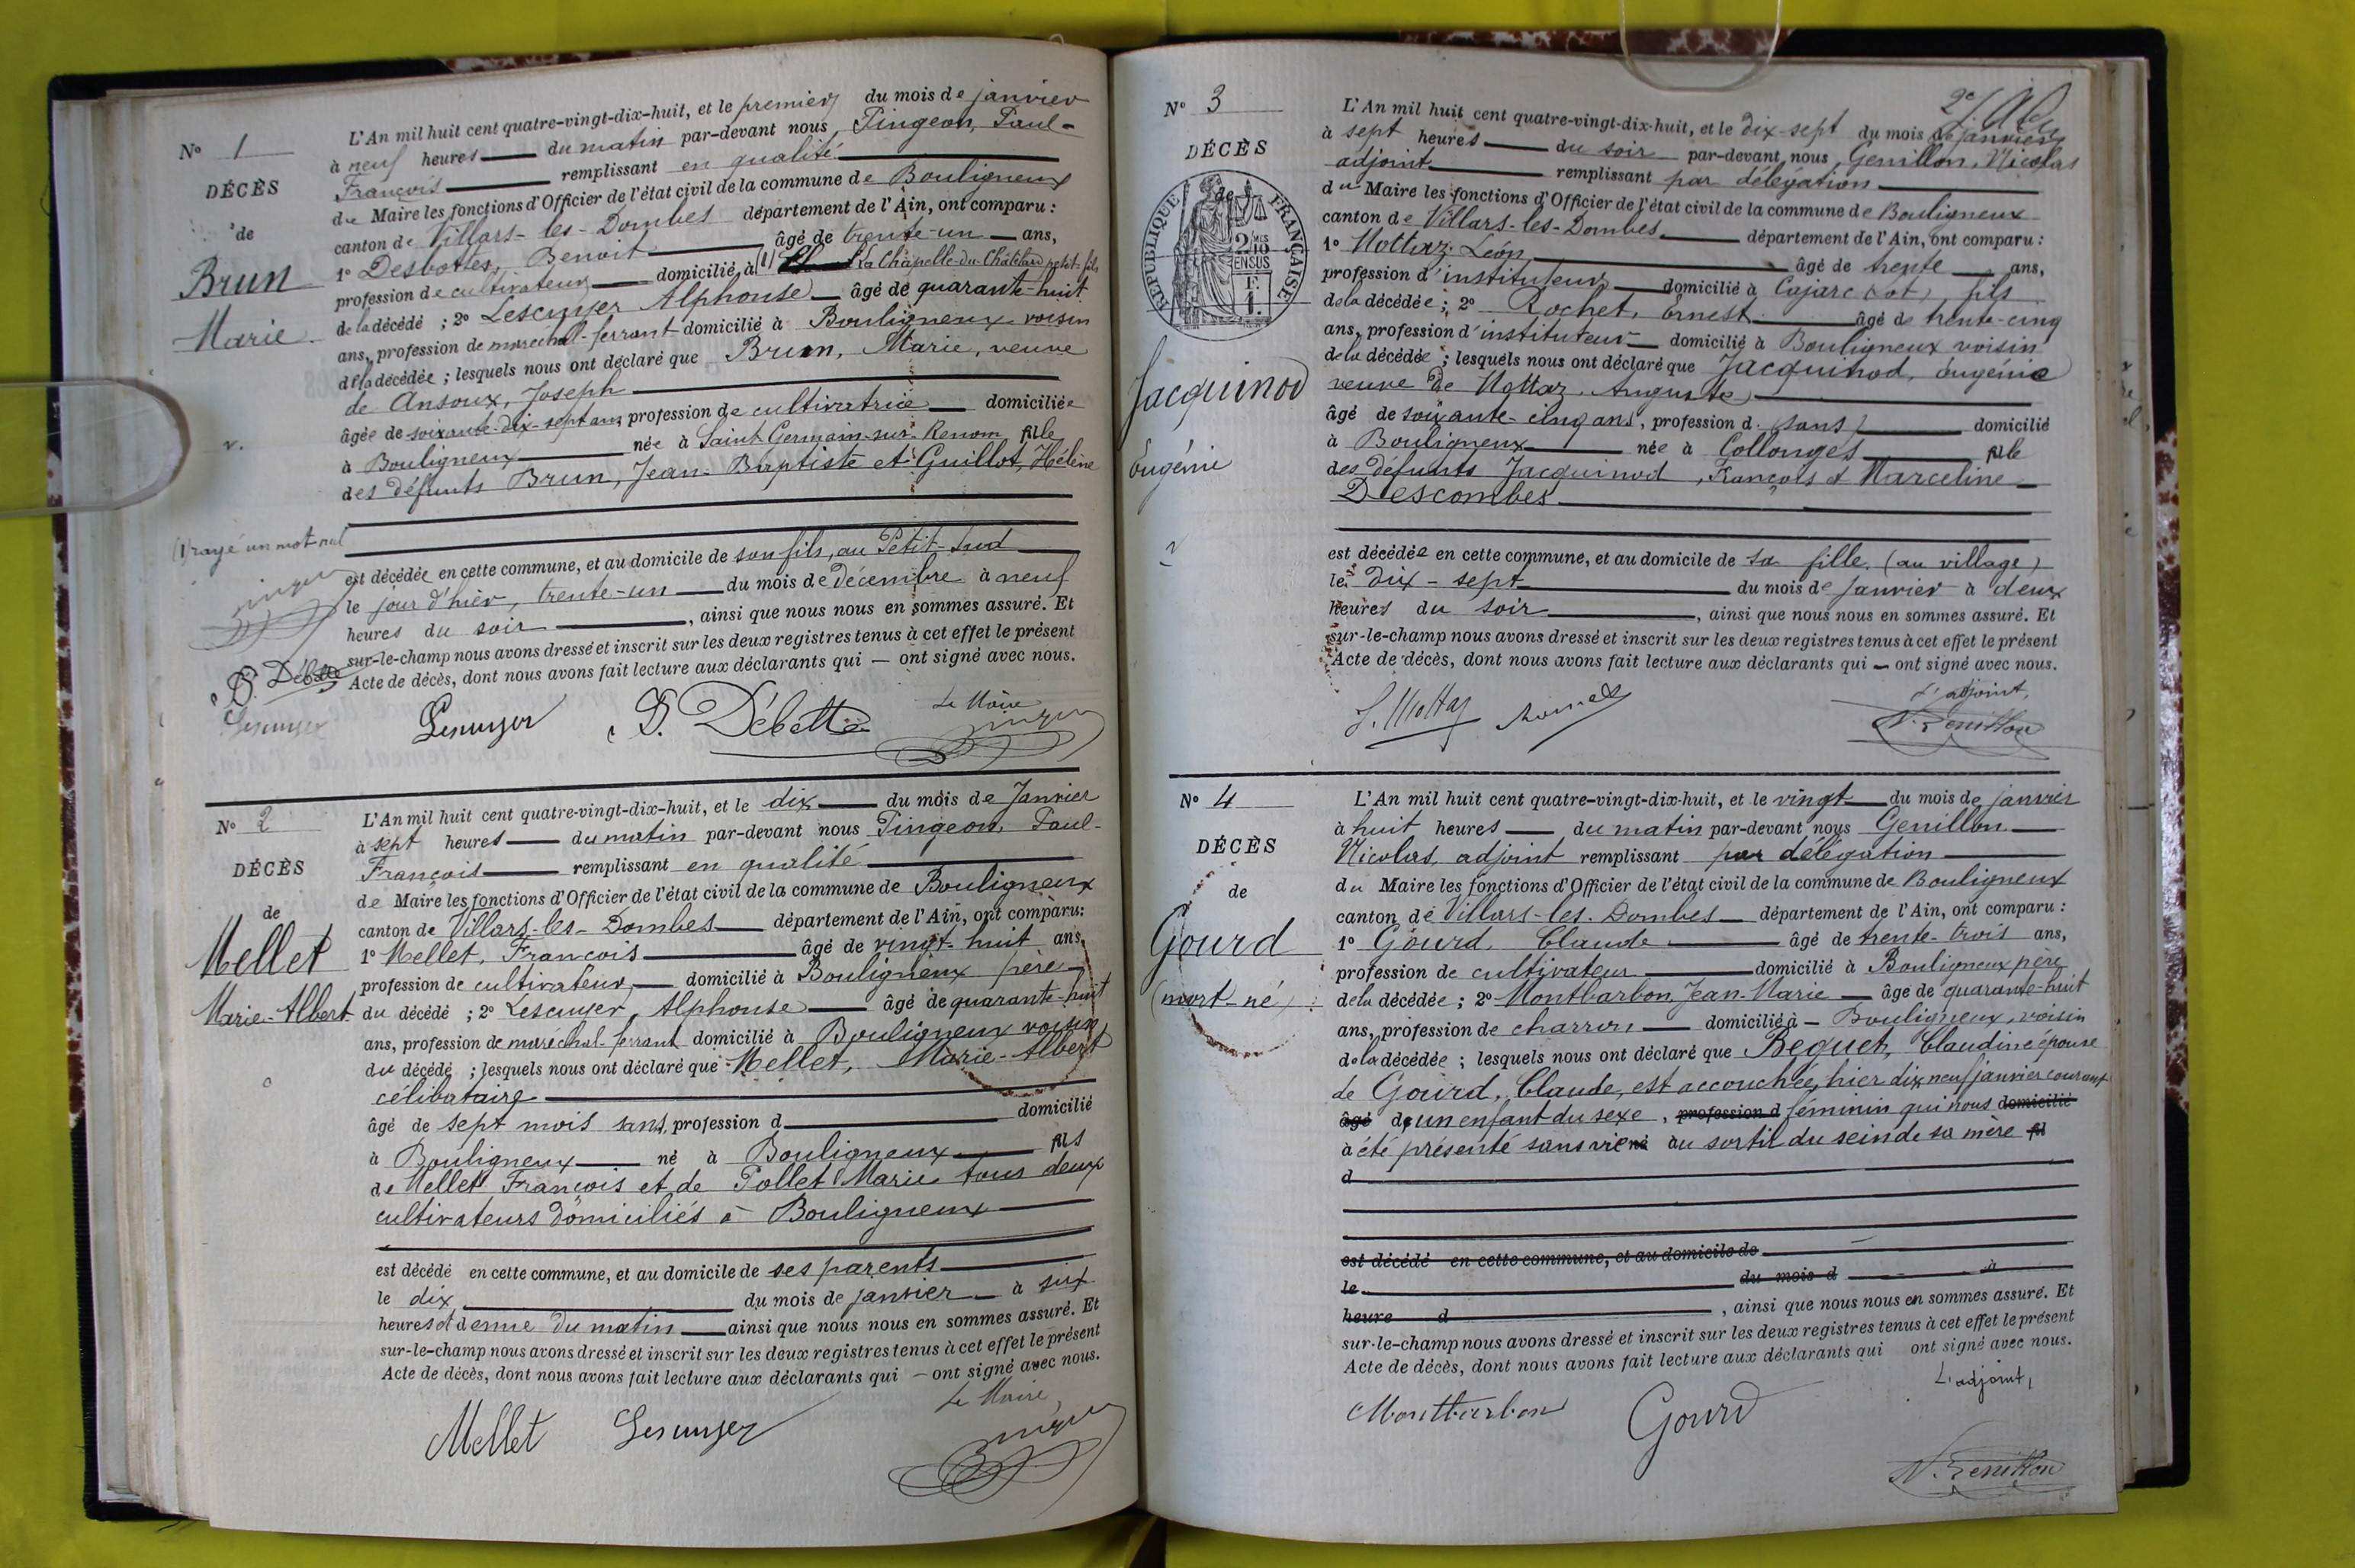 N° 1
DÉCÈS
de
Brun
Marie
L'An mil huit cent quatre-vingt-dix-huit, et le premier du mois de janvier
à neuf heures du matin par-devant nous, Pingeon, Paul-
François remplissant en qualité
de Maire les fonctions d'Officier de l'état civil de la commune de Bouligneux
canton de Villars-les-Dombes département de l'Ain, ont comparu :
1° Desbottes, Benoit âgé de trente-un ans,
profession de cultivateur domicilié à (1) La Chapelle-du-Châtelard petit-fils
de la décédé ; 2° Lescuyer Alphonse âgé de quarante-huit
ans, profession de maréchal-ferrant domicilié à Bouligneux voisin
de la décédée ; lesquels nous ont déclaré que Brun, Marie, veuve
de Ansoux, Joseph
âgée de soixante-dix-sept ans profession de cultivatrice domiciliée
à Bouligneux née à Saint Germain-sur-Renom fille
des défunts Brun, Jean-Baptiste et Guillot, Hélène
(1) rayé un mot nul
est décédée en cette commune, et au domicile de son fils, au Petit-Sud
le jour d'hier, trente-un du mois de décembre à neuf
heures du soir, ainsi que nous nous en sommes assuré. Et
sur-le-champ nous avons dressé et inscrit sur les deux registres tenus à cet effet le présent
Acte de décès, dont nous avons fait lecture aux déclarants qui — ont signé avec nous.
Lescuyer
Le Maire
Lescuyer
N° 2
DÉCÈS
de
Mellet
Marie-Albert
L'An mil huit cent quatre-vingt-dix-huit, et le dix du mois de Janvier
à sept heures du matin par-devant nous Pingeon, Paul-
François remplissant en qualité
de Maire les fonctions d'Officier de l'état civil de la commune de Bouligneux
canton de Villars-les-Dombes département de l'Ain, ont comparu :
1° Mellet, François âgé de vingt-huit ans,
profession de cultivateur domicilié à Bouligneux père
du décédé ; 2° Lescuyer, Alphonse âgé de quarante-huit
ans, profession de maréchal-ferrant domicilié à Bouligneux voisin
du décédé ; lesquels nous ont déclaré que Mellet, Marie-Albert
célibataire
âgé de sept mois sans, profession d domicilié
à Bouligneux né à Bouligneux fils
de Mellet François et de Pollet Marie tous deux
cultivateurs domiciliés à Bouligneux
est décédé en cette commune, et au domicile de ses parents
le dix du mois de janvier à six
heures et demie du matin ainsi que nous nous en sommes assuré. Et
sur-le-champ nous avons dressé et inscrit sur les deux registres tenus à cet effet le présent
Acte de décès, dont nous avons fait lecture aux déclarants qui — ont signé avec nous.
Le Maire
Mellet Lescuyer
N° 3
DÉCÈS
de
RÉPUBLIQUE FRANÇAISE
2/10 EN SUS
Jacquinod
Eugénie
L'An mil huit cent quatre-vingt-dix-huit, et le dix-sept du mois de janvier
à sept heures du soir par-devant nous, Genillon, Nicolas
adjoint remplissant par délégation
du Maire les fonctions d'Officier de l'état civil de la commune de Bouligneux
canton de Villars-les-Dombes département de l'Ain, ont comparu :
1° Mottaz, Léon, âgé de trente ans,
profession d'instituteur domicilié à Cajarc (Lot) fils
de la décédée ; 2° Rochet, Ernest âgé de trente-cinq
ans, profession d'instituteur domicilié à Bouligneux voisin
de la décédée ; lesquels nous ont déclaré que Jacquinod, Eugénie
veuve de Mottaz, Auguste
âgé de soixante-cinq ans, profession d (sans) domicilié
à Bouligneux née à Collonges fille
des défunts Jacquinod, François et Marceline
Descombes
est décédée en cette commune, et au domicile de sa fille, (au village)
le dix-sept du mois de Janvier à deux
heures du soir, ainsi que nous nous en sommes assuré. Et
sur-le-champ nous avons dressé et inscrit sur les deux registres tenus à cet effet le présent
Acte de décès, dont nous avons fait lecture aux déclarants qui — ont signé avec nous.
L'adjoint,
L. Mottaz N. Genillon
N° 4
DÉCÈS
de
Gourd
(mort-né)
L'An mil huit cent quatre-vingt-dix-huit, et le vingt du mois de janvier
à huit heures du matin par-devant nous Genillon
Nicolas, adjoint remplissant par délégation
du Maire les fonctions d'Officier de l'état civil de la commune de Bouligneux
canton de Villars-les-Dombes département de l'Ain, ont comparu :
1° Gourd, Claude âgé de trente-trois ans,
profession de cultivateur domicilié à Bouligneux père
de la décédée ; 2° Montbarbon, Jean-Marie âgé de quarante-huit
ans, profession de charron domicilié à Bouligneux, voisin
de la décédée ; lesquels nous ont déclaré que Beguet, Claudine épouse
de Gourd, Claude, est accouchée, hier dix neuf janvier courant
âgé d'un enfant du sexe, profession d féminin qui nous domicilié
a été présenté sans vie né au sortir du sein de sa mère fil
d
est décédé en cette commune, et au domicile de
le du mois d à
heure d, ainsi que nous nous en sommes assuré. Et
sur-le-champ nous avons dressé et inscrit sur les deux registres tenus à cet effet le présent
Acte de décès, dont nous avons fait lecture aux déclarants qui ont signé avec nous.
L'adjoint,
Montbarbon Gourd
N. Genillon